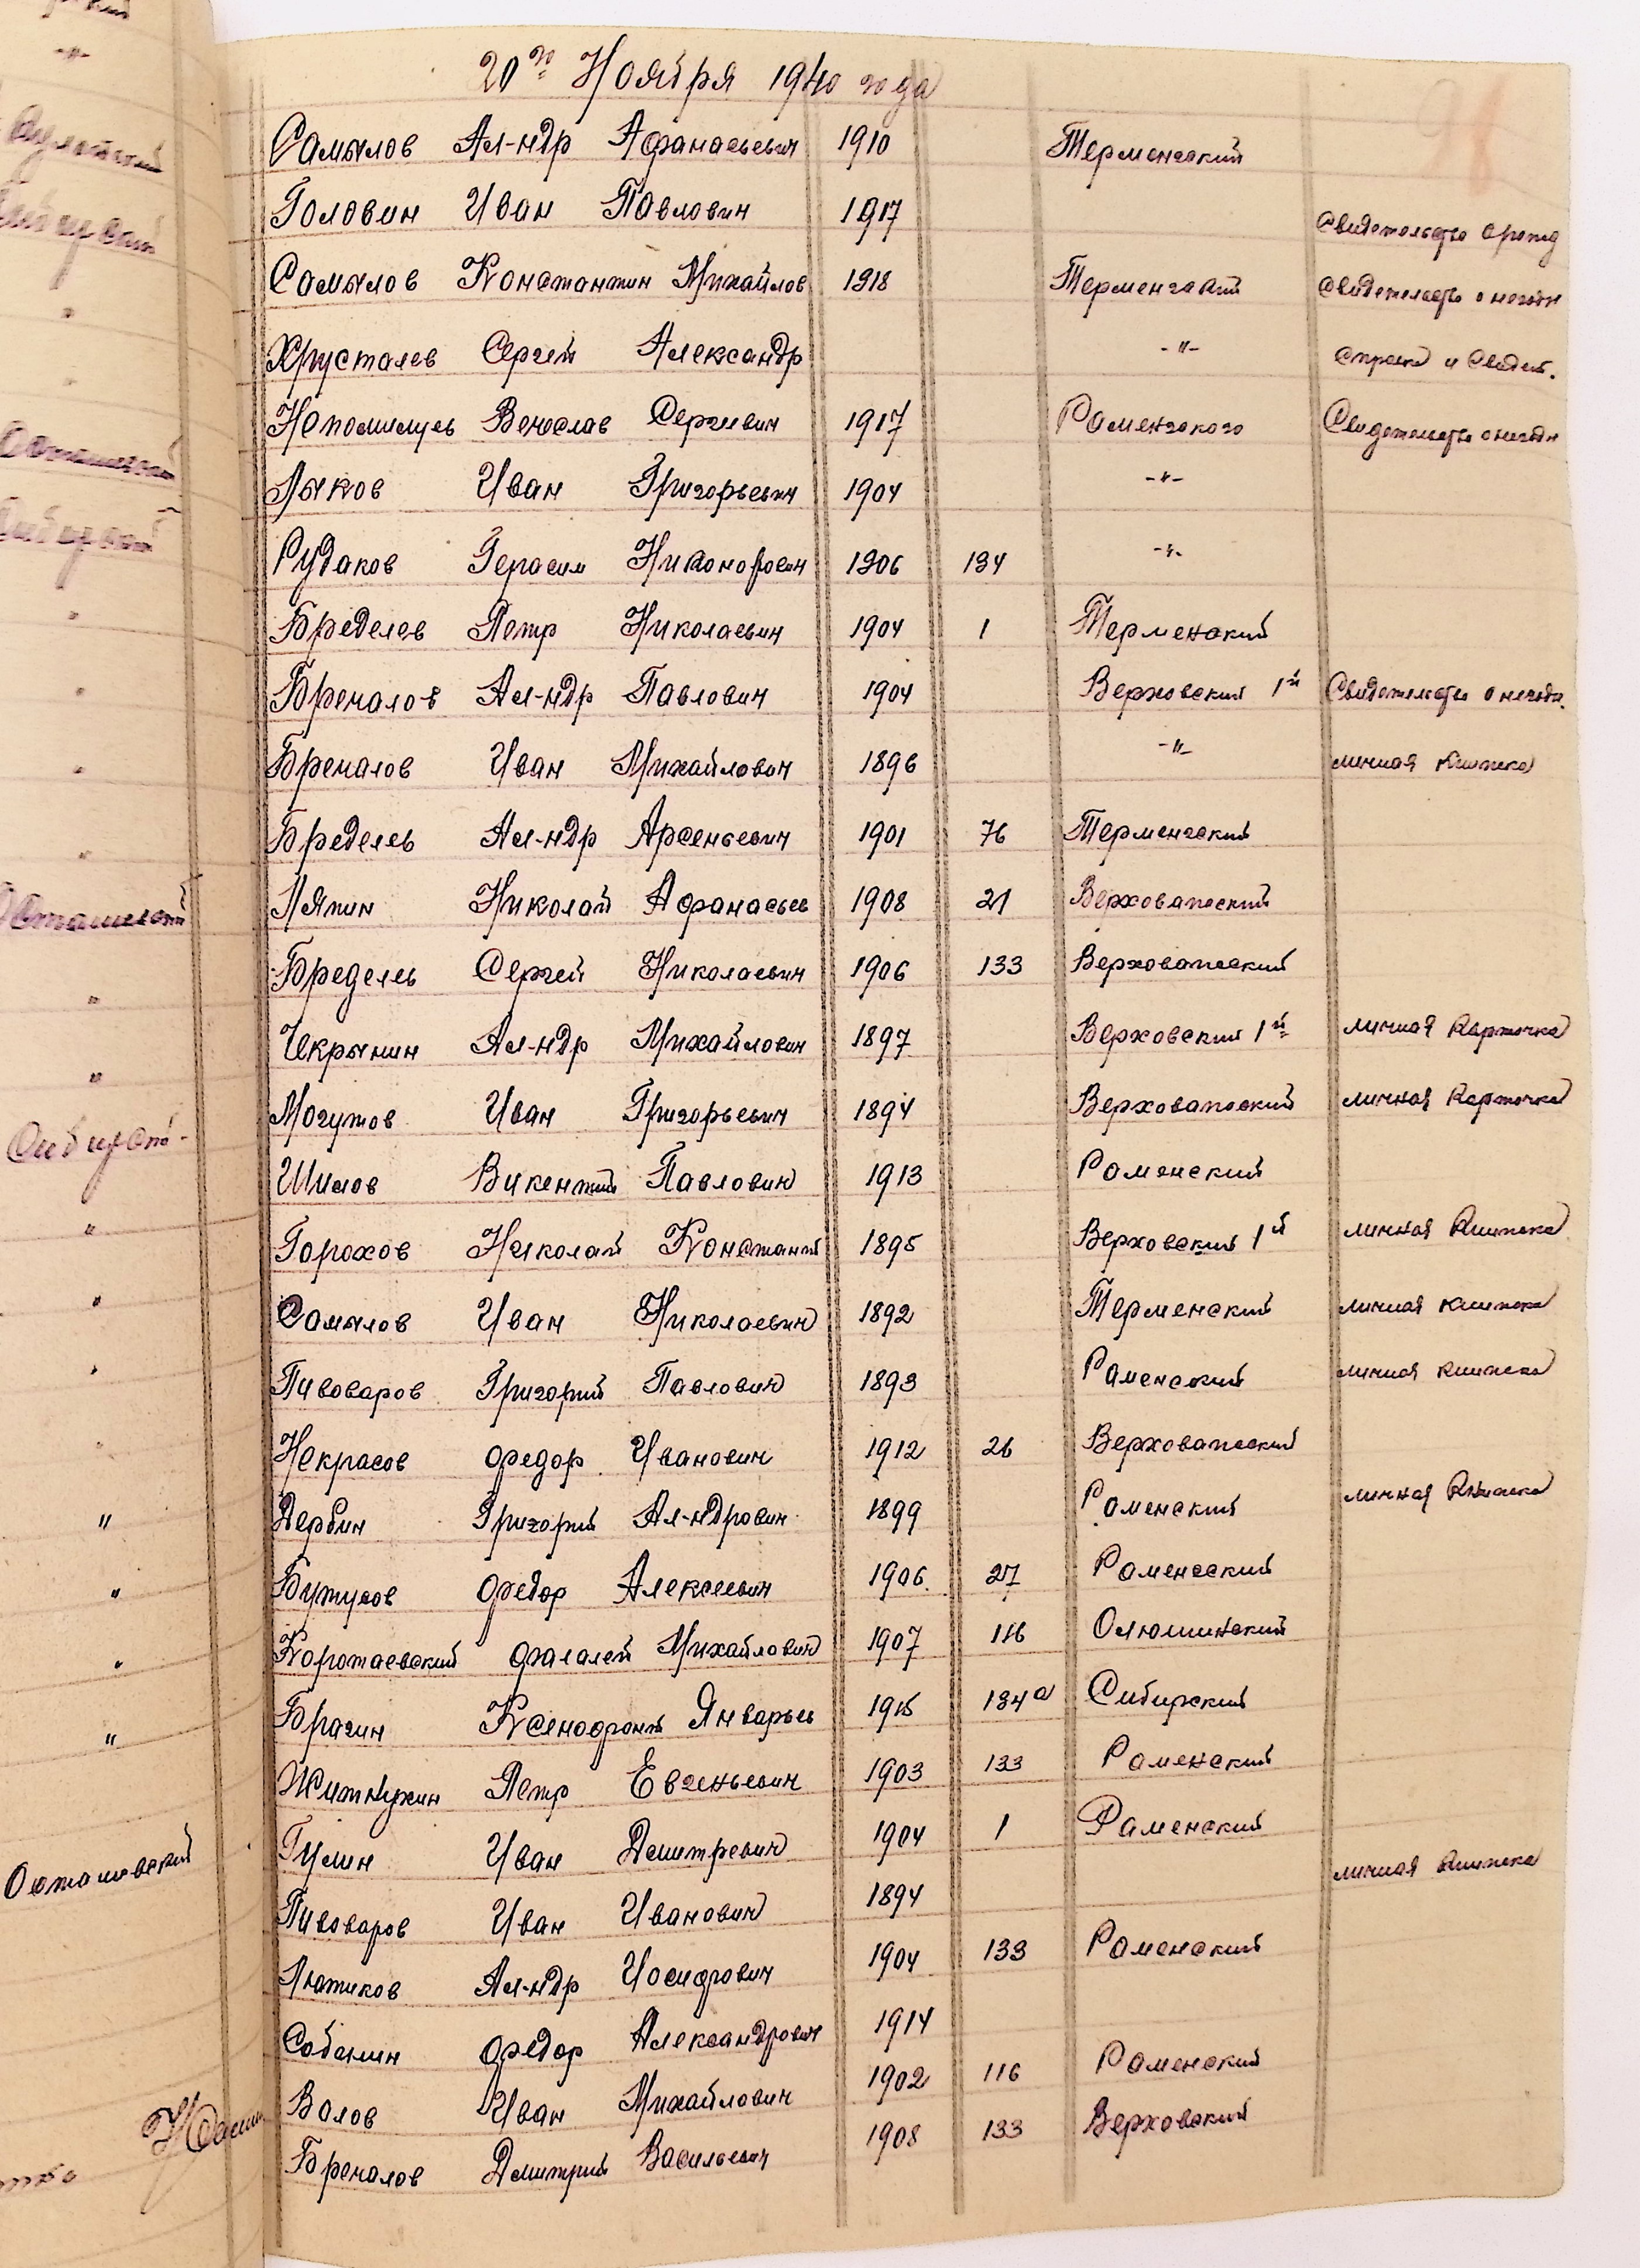 20го Ноября 1940 года
Самылов Ал-ндр Афанасьевич 1910 Терменгский
Головин Иван Павлович 1917 Свидетельство о рожд
Самылов Константин Михайлов 1918 Терменгский Свидетельство о негодн
Хрусталев Сергей Александр -"- справка и Свидет.
Непомилуев Венеслав Сергеевич 1917 Раменгского Свидетельство о негодн
Лыков Иван Григорьевич 1904 -"-
Рудаков Герасим Никонорович 1906 134 -"-
Бределев Петр Николаевич 1904 1 Терменский
Бречалов Ал-ндр Павлович 1904 Верховский 1й Свидетельство о негодн.
Бречалов Иван Михайлович 1896 -"- личная книжка
Бределев Ал-ндр Арсеньевич 1901 76 Терменгский
Ляпин Николай Афанасьев 1908 21 Верховажский
Бределев Сергей Николаевич 1906 133 Верховажский
Чекрынин Ал-ндр Михайлович 1897 Верховский 1й личная карточка
Могутов Иван Григорьевич 1894 Верховажский личная карточка
Шилов Викентий Павлович 1913 Раменский
Горохов Николай Константи 1895 Верховский 1й личная книжка
Самылов Иван Николаевич 1892 Терменский личная книжка
Пивоваров Григорий Павлович 1893 Раменский личная книжка
Некрасов Федор Иванович 1912 26 Верховажский
Дербин Григорий Ал-ндрович 1899 Раменский личная книжка
Бутусов Федор Алексеевич 1906. 27 Раменский
Коротаевский Фалалей Михайлович 1907 116 Олюшинский
Брагин Ксенофонт Январьев 1915 134а Сибирский
Житнухин Петр Евгеньевич 1903 133 Раменский
Гулин Иван Дмитревич 1904 1 Раменский
Пивоваров Иван Иванович 1894 личная книжка
Лютиков Ал-ндр Иосифович 1904 133 Раменский
Собенин Федор Александрович 1914
Волов Иван Михайлович 1902 116 Раменский
Бречалов Дмитрий Васильевич 1908 133 Верховский
Осташевский
Сибирский
Осташевский
Осташевский